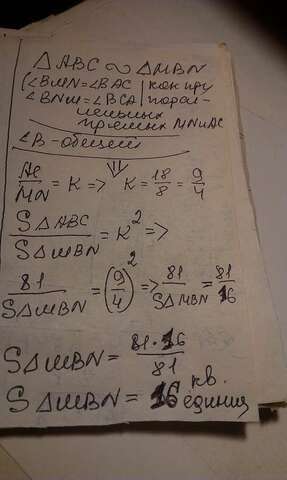 △ABC ∾ △MBN
(∠BMN=∠BAC | как при
∠BNM=∠BCA | парал-
лельных
прямых MN и AC
∠B-общий
⇓
AC/MN = K => K = 18/8 = 9/4
S△ABC/S△MBN = K² =>
81/S△MBN = (9/4)² => 81/S△MBN = 81/16
S△MBN = 81·16/81
S△MBN = 16 кв. единиц